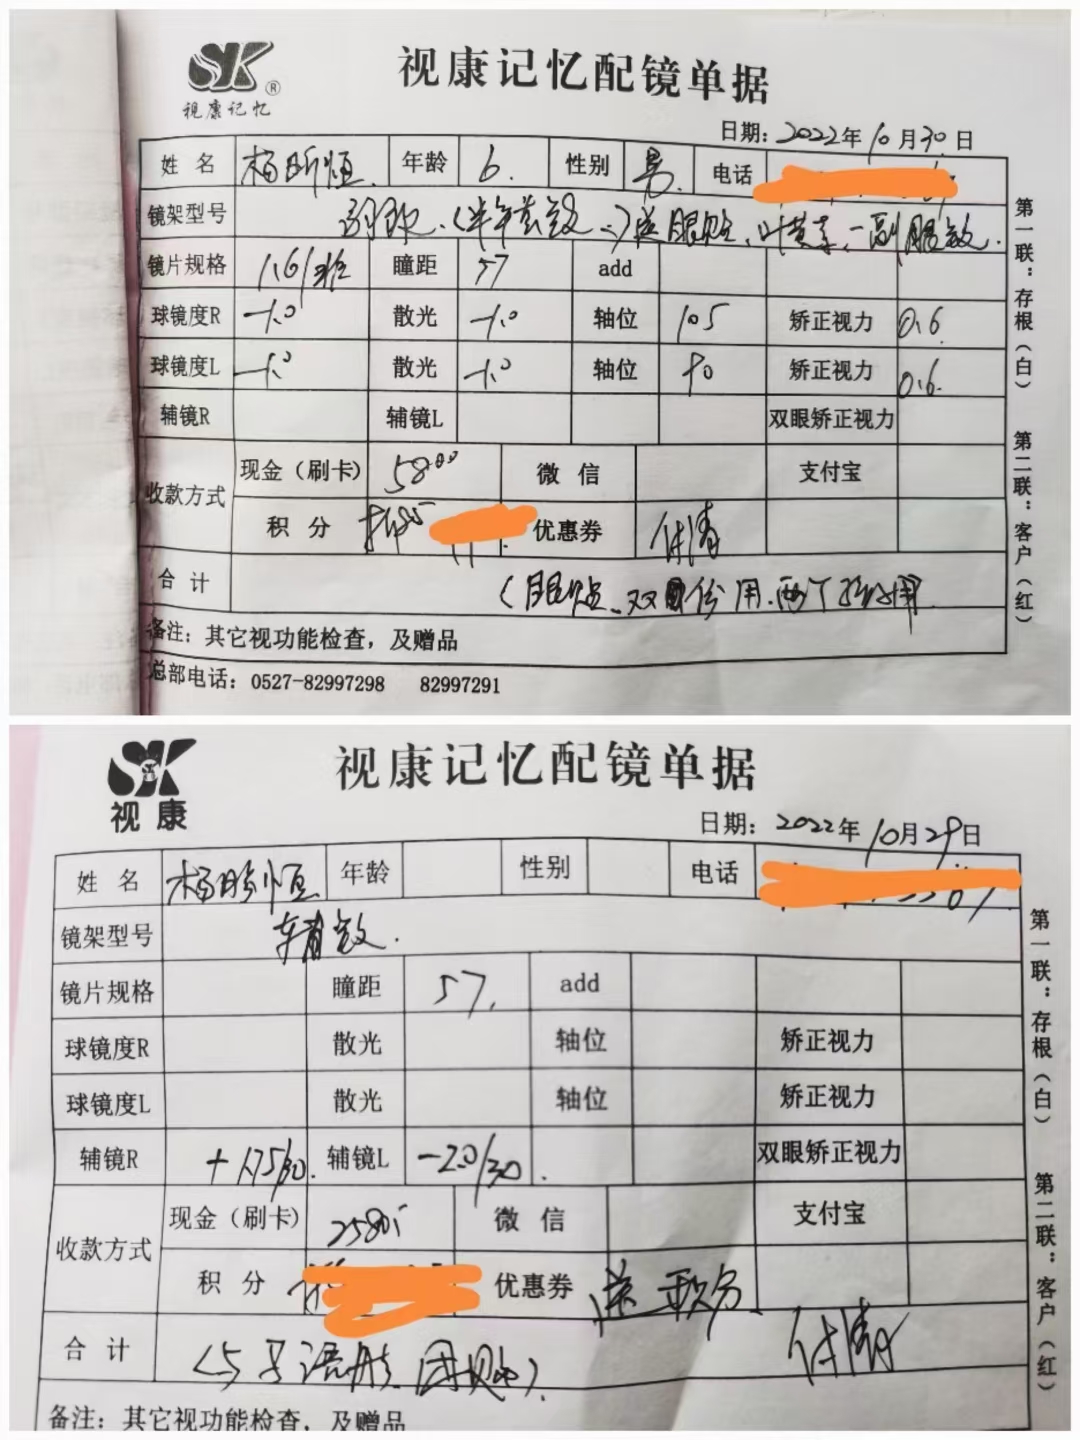 SK®
视康记忆
视康记忆配镜单据
日期：2022年10月30日
姓 名 杨 恒 年龄 6. 性别 男 电话
镜架型号 送眼贴 一副眼
镜片规格 1.61 瞳距 57 add
球镜度R -1.0 散光 -1.0 轴位 105 矫正视力 0.6
球镜度L -1.0 散光 -1.0 轴位 90 矫正视力 0.6.
辅镜R 辅镜L 双眼矫正视力
收款方式 现金（刷卡） 58 微 信 支付宝
积 分 优惠券 付清
合 计 （眼贴、双 用
备注：其它视功能检查，及赠品
总部电话：0527-82997298 82997291
第一联：存根（白） 第二联：客户（红）
SK
视 康
视康记忆配镜单据
日期：2022年10月29日
姓 名 杨 恒 年龄 性别 电话
镜架型号 辅
镜片规格 瞳距 57. add
球镜度R 散光 轴位 矫正视力
球镜度L 散光 轴位 矫正视力
辅镜R +1.75/30. 辅镜L -2.0/30. 双眼矫正视力
收款方式 现金（刷卡） 2580 微 信 支付宝
积 分 优惠券 送 积分 付清
合 计
备注：其它视功能检查，及赠品
第一联：存根（白） 第二联：客户（红）